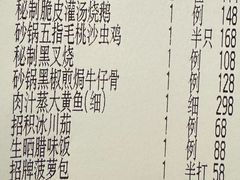 秘制脆皮灌汤烧鹅 1 例 148
砂锅五指毛桃沙虫鸡 1 半只 168
秘制黑叉烧 1 例 108
砂锅黑椒煎焗牛仔骨 1 例 128
肉汁蒸大黄鱼(细) 1 细 298
招积冰川茄 1 例 68
生晒腊味饭 1 例 88
招牌菠萝包 1 半打 58